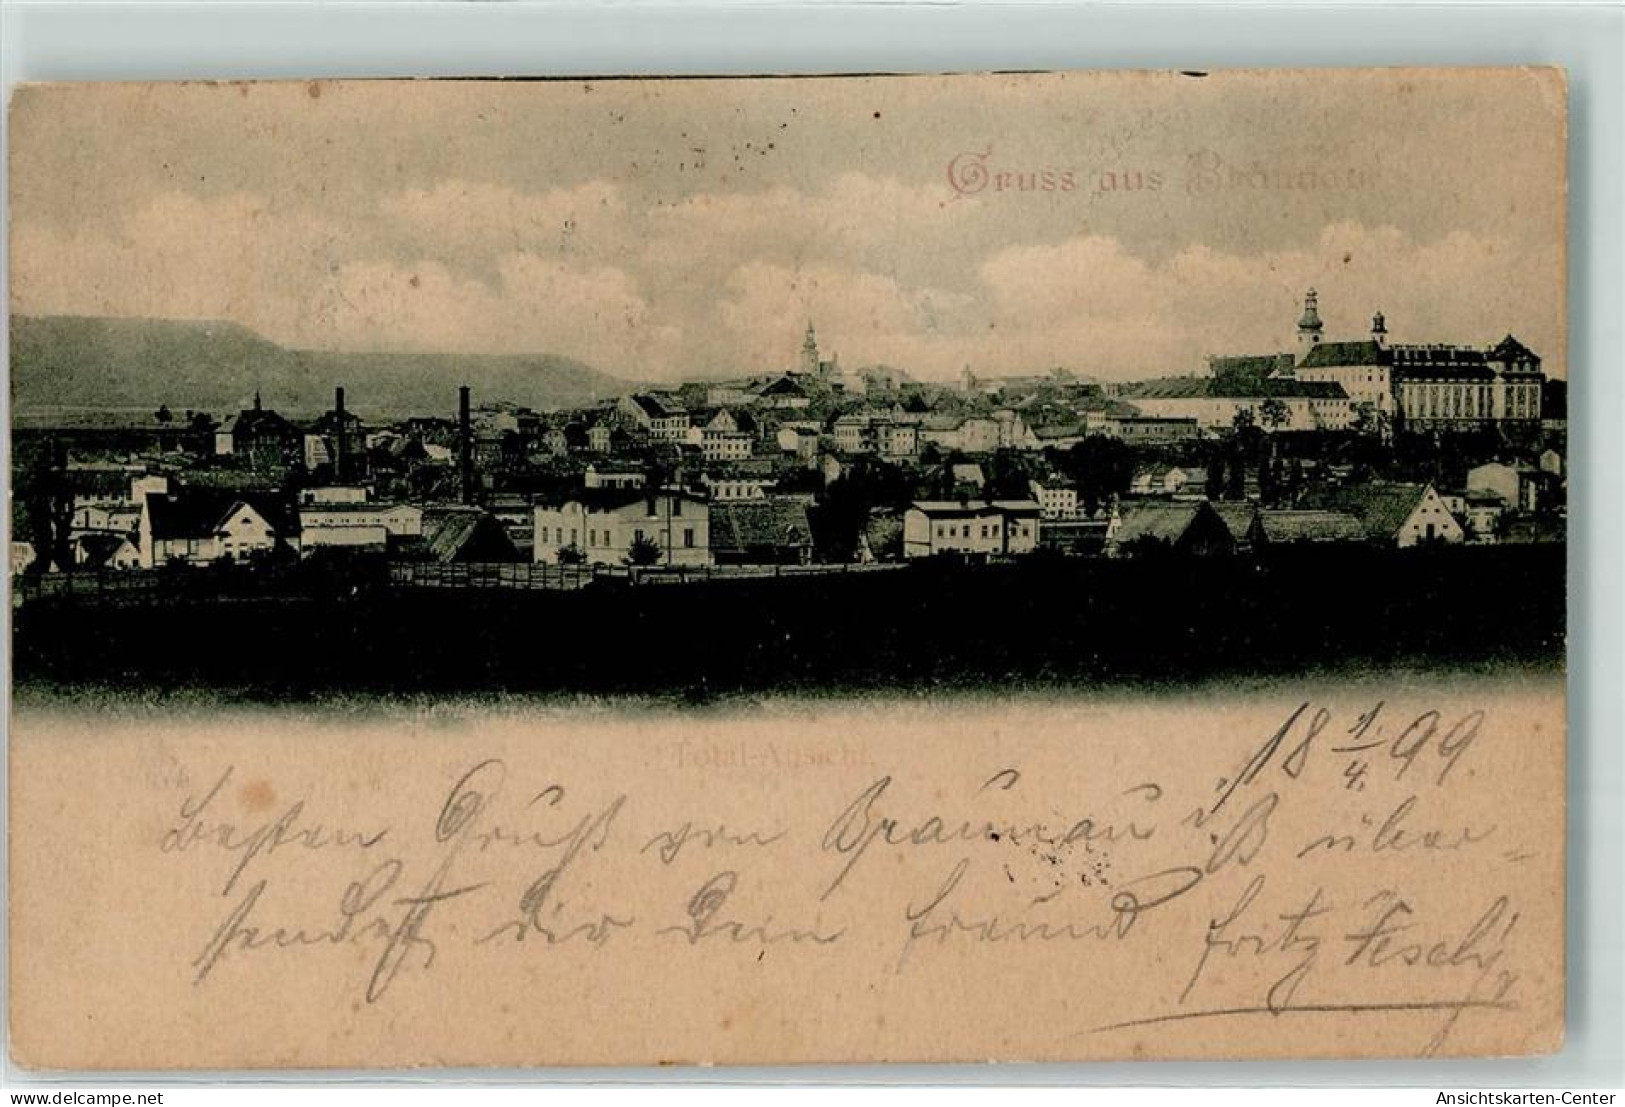 Gruss aus Braunau
Total-Ansicht.
18 1/4. 99.
Besten Gruß von Braunau i/B über-
sendet dir Dein Freund Fritz
www.delcampe.net
Ansichtskarten-Center